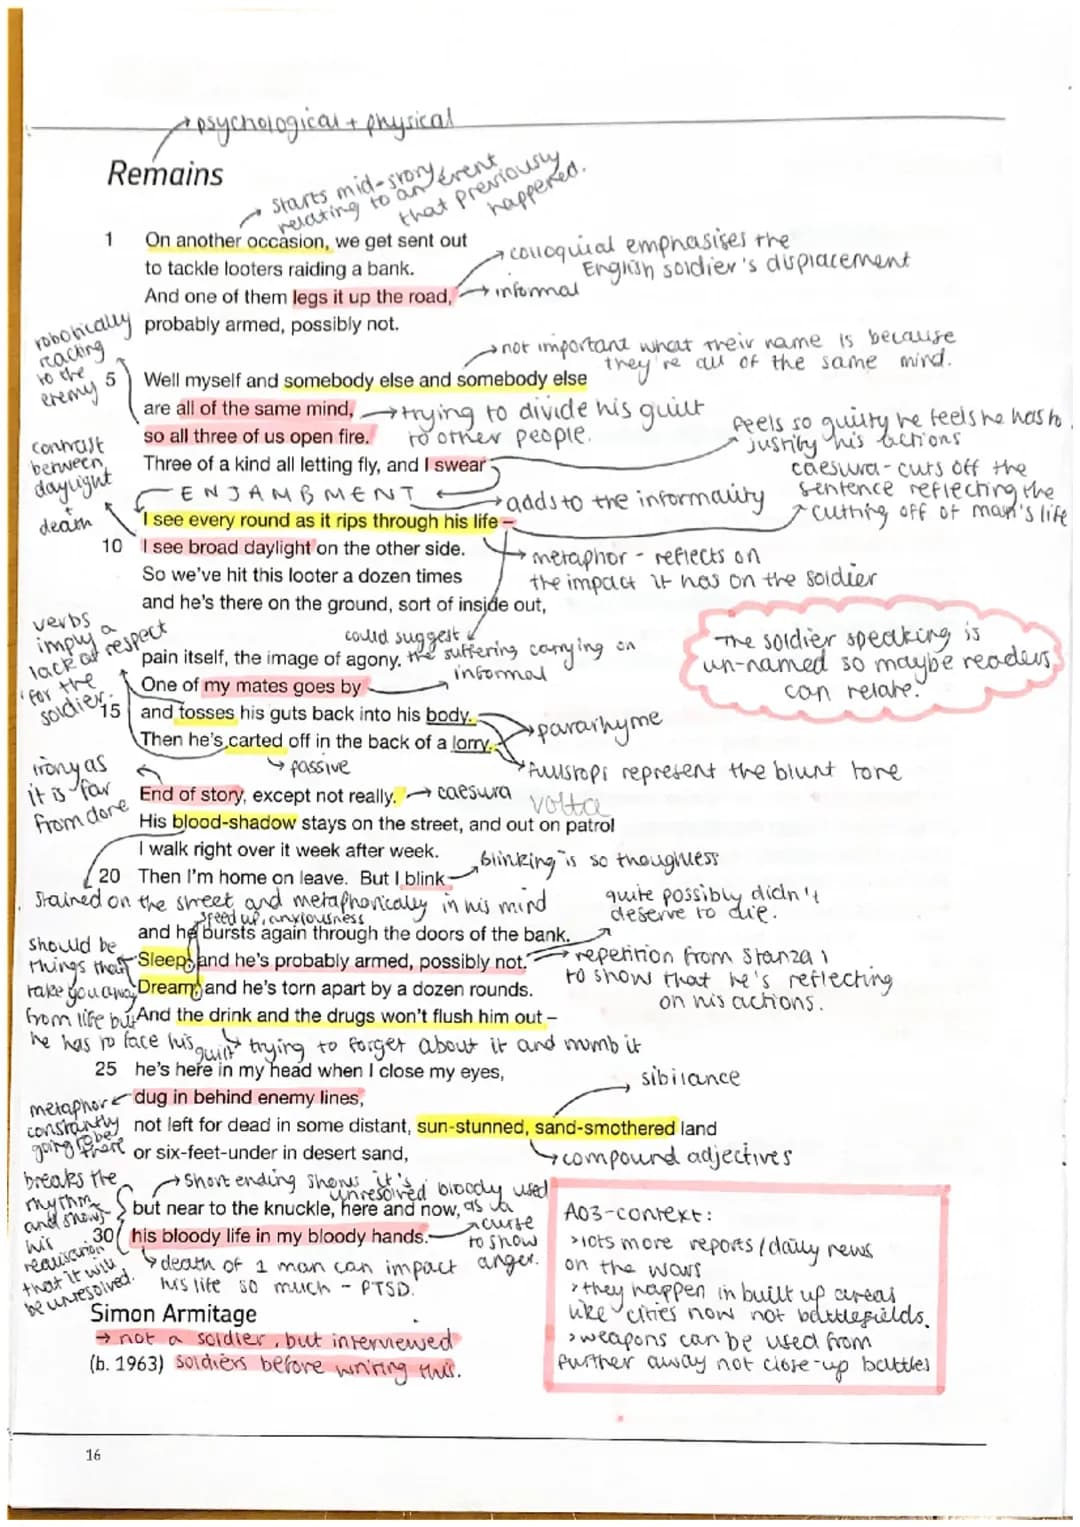 psychological + physical
Remains
starts mid-story
relating to an event
that previously
happened.
1 On another occasion, we get sent out
to tackle looters raiding a bank.
And one of them legs it up the road,
probably armed, possibly not.
colloquial emphasises the
English soldier's displacement
informal
robotically
reacting
to the
enemy
not important what their name is because
they're all of the same mind.
5 Well myself and somebody else and somebody else
are all of the same mind,
so all three of us open fire.
Three of a kind all letting fly, and I swear
trying to divide his guilt
to other people.
feels so guilty he feels he has to
justify his actions
contrast
between
daylight
+
death
ENJAMBMENT
adds to the informality
caesura - cuts off the
sentence reflecting the
cutting off of man's life
I see every round as it rips through his life –
10 I see broad daylight on the other side.
So we've hit this looter a dozen times
and he's there on the ground, sort of inside out,
metaphor - reflects on
the impact it has on the soldier
verbs
imply a
lack of respect
for the
soldier.
could suggest
the suffering carrying on
pain itself, the image of agony.
One of my mates goes by
informal
15 and tosses his guts back into his body.
Then he's carted off in the back of a lorry.
pararhyme
passive
fullstops represent the blunt tone
The soldier speaking is
un-named so maybe readers
can relate.
irony as
it is far
from done
End of story, except not really.
caesura
volta
His blood-shadow stays on the street, and out on patrol
I walk right over it week after week.
20 Then I'm home on leave. But I blink
"blinking" is so thoughtless
Stained on the street and metaphorically in his mind
speed up, anxiousness
quite possibly didn't
deserve to die.
and he bursts again through the doors of the bank.
Sleep, and he's probably armed, possibly not.
Dream, and he's torn apart by a dozen rounds.
And the drink and the drugs won't flush him out –
repetition from Stanza 1
to show that he's reflecting
on his actions.
should be
things that
take you away
from life but
he has to face his
guilt
trying to forget about it and numb it
25 he's here in my head when I close my eyes,
dug in behind enemy lines,
not left for dead in some distant, sun-stunned, sand-smothered land
or six-feet-under in desert sand,
sibilance
compound adjectives
metaphor
constantly
going to be
there
breaks the
rhythm
and shows
his
realisation
that it will
be unresolved.
Short ending shows it's
unresolved
bloody used
as a
curse
to show
anger.
but near to the knuckle, here and now,
30 his bloody life in my bloody hands.
death of 1 man can impact
his life so much - PTSD.
Simon Armitage
→ not a soldier, but interviewed
(b. 1963) soldiers before writing this.
AO3-context:
>lots more reports/daily news
on the wars
>they happen in built up areas
like cities now not battlefields.
>weapons can be used from
further away not close-up battles
16